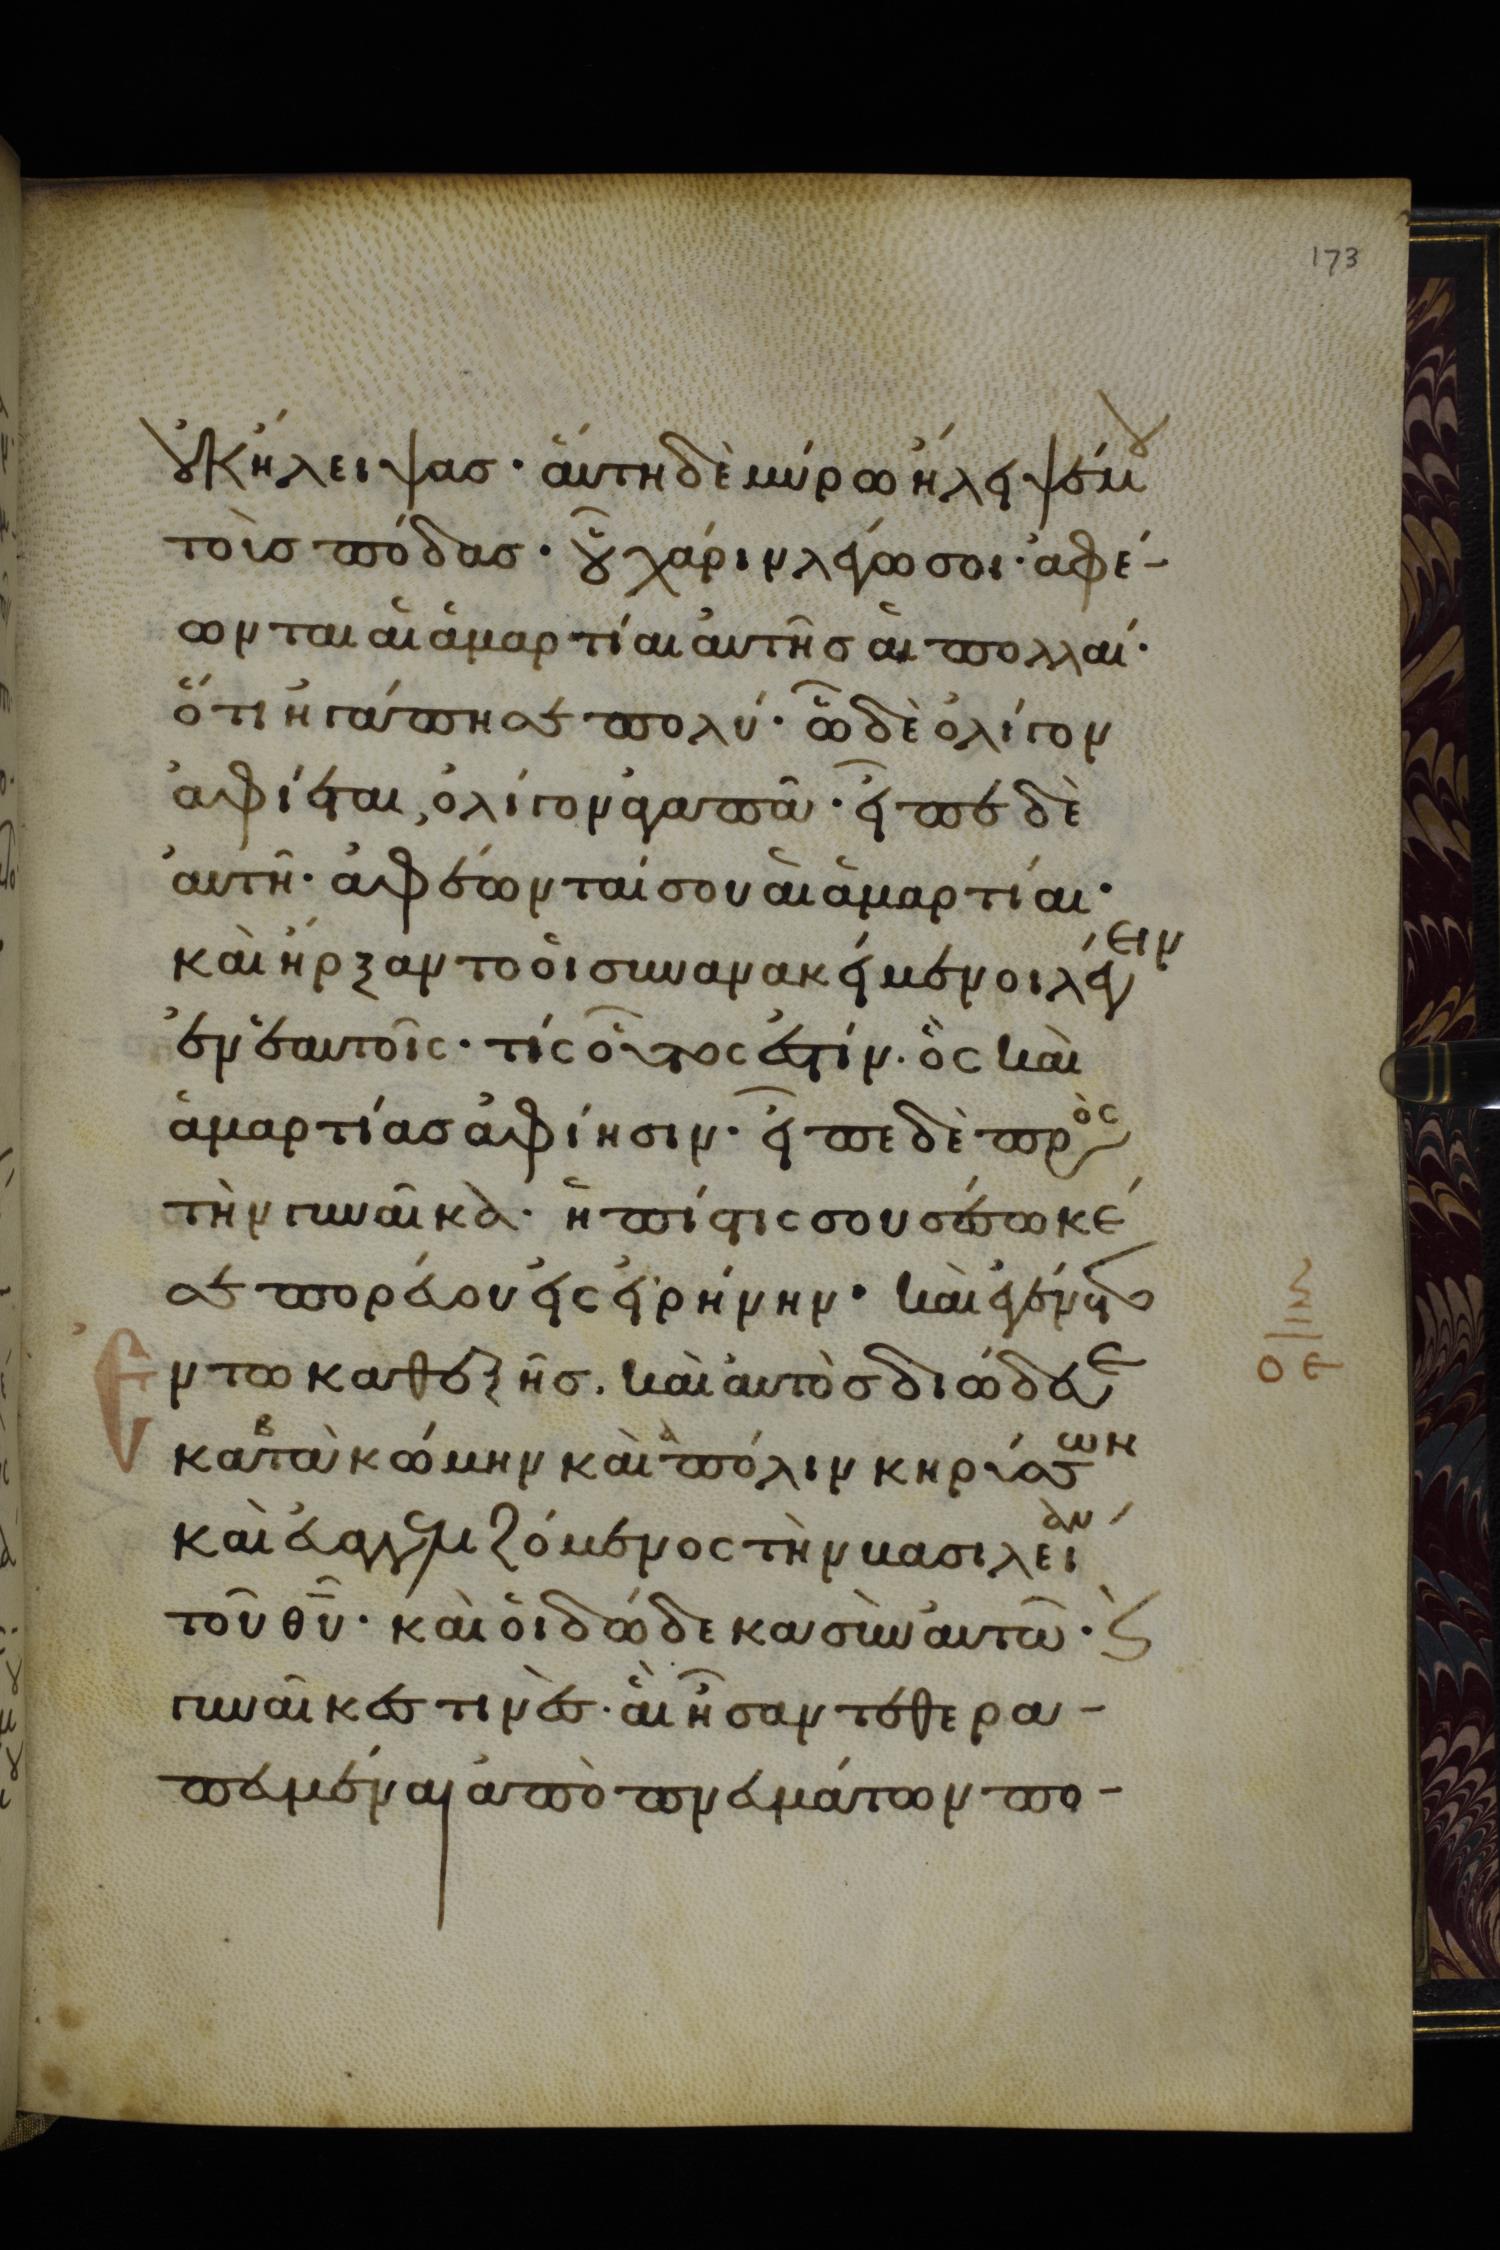 173
οὐκ ἤλειψας· αὕτη δὲ μύρω ἤλειψέ μου
τοὺσ πόδασ· οὗ χάριν λέγω σοι· ἀφέ-
ωνται αἱ ἁμαρτίαι ἀυτῆσ ἁι πολλαί·
ὅτι ἠγάπησε πολύ· ὧ δὲ ὀλίγον
ἀφίεται, ὀλίγον ἀγαπᾶ· εἶπε δὲ
ἀυτῆ· ἀφέωνταί σου ἁι ἁμαρτίαι·
καὶ ἤρξαντο ὁι συνανακείμενοι λέγειν
ἐν ἑαυτοῖς· τίς οὗτος ἐστίν· ὃς καὶ
ἁμαρτίασ ἀφίησιν· εἶπε δὲ πρὸς
τὴν γυναῖκα· ἡ πίστις σου σέσωκέ
σε πορεύου εἰς εἰρήνην· καὶ ἐγένετο
ἐν τῶ καθεξῆσ. καὶ ἀυτὸσ διώδευε
κατὰ κώμην καὶ πόλιν κηρύσσων
καὶ ἐυαγγελιζόμενος τὴν βασιλείαν
τοῦ θῦ· καὶ ὁι δώδεκα σὺν ἀυτῶ· καὶ
γυναῖκες τινὲς· ἁὶ ἦσαν τεθερα-
πευμέναι ἀπὸ πνευμάτων πο-
οε